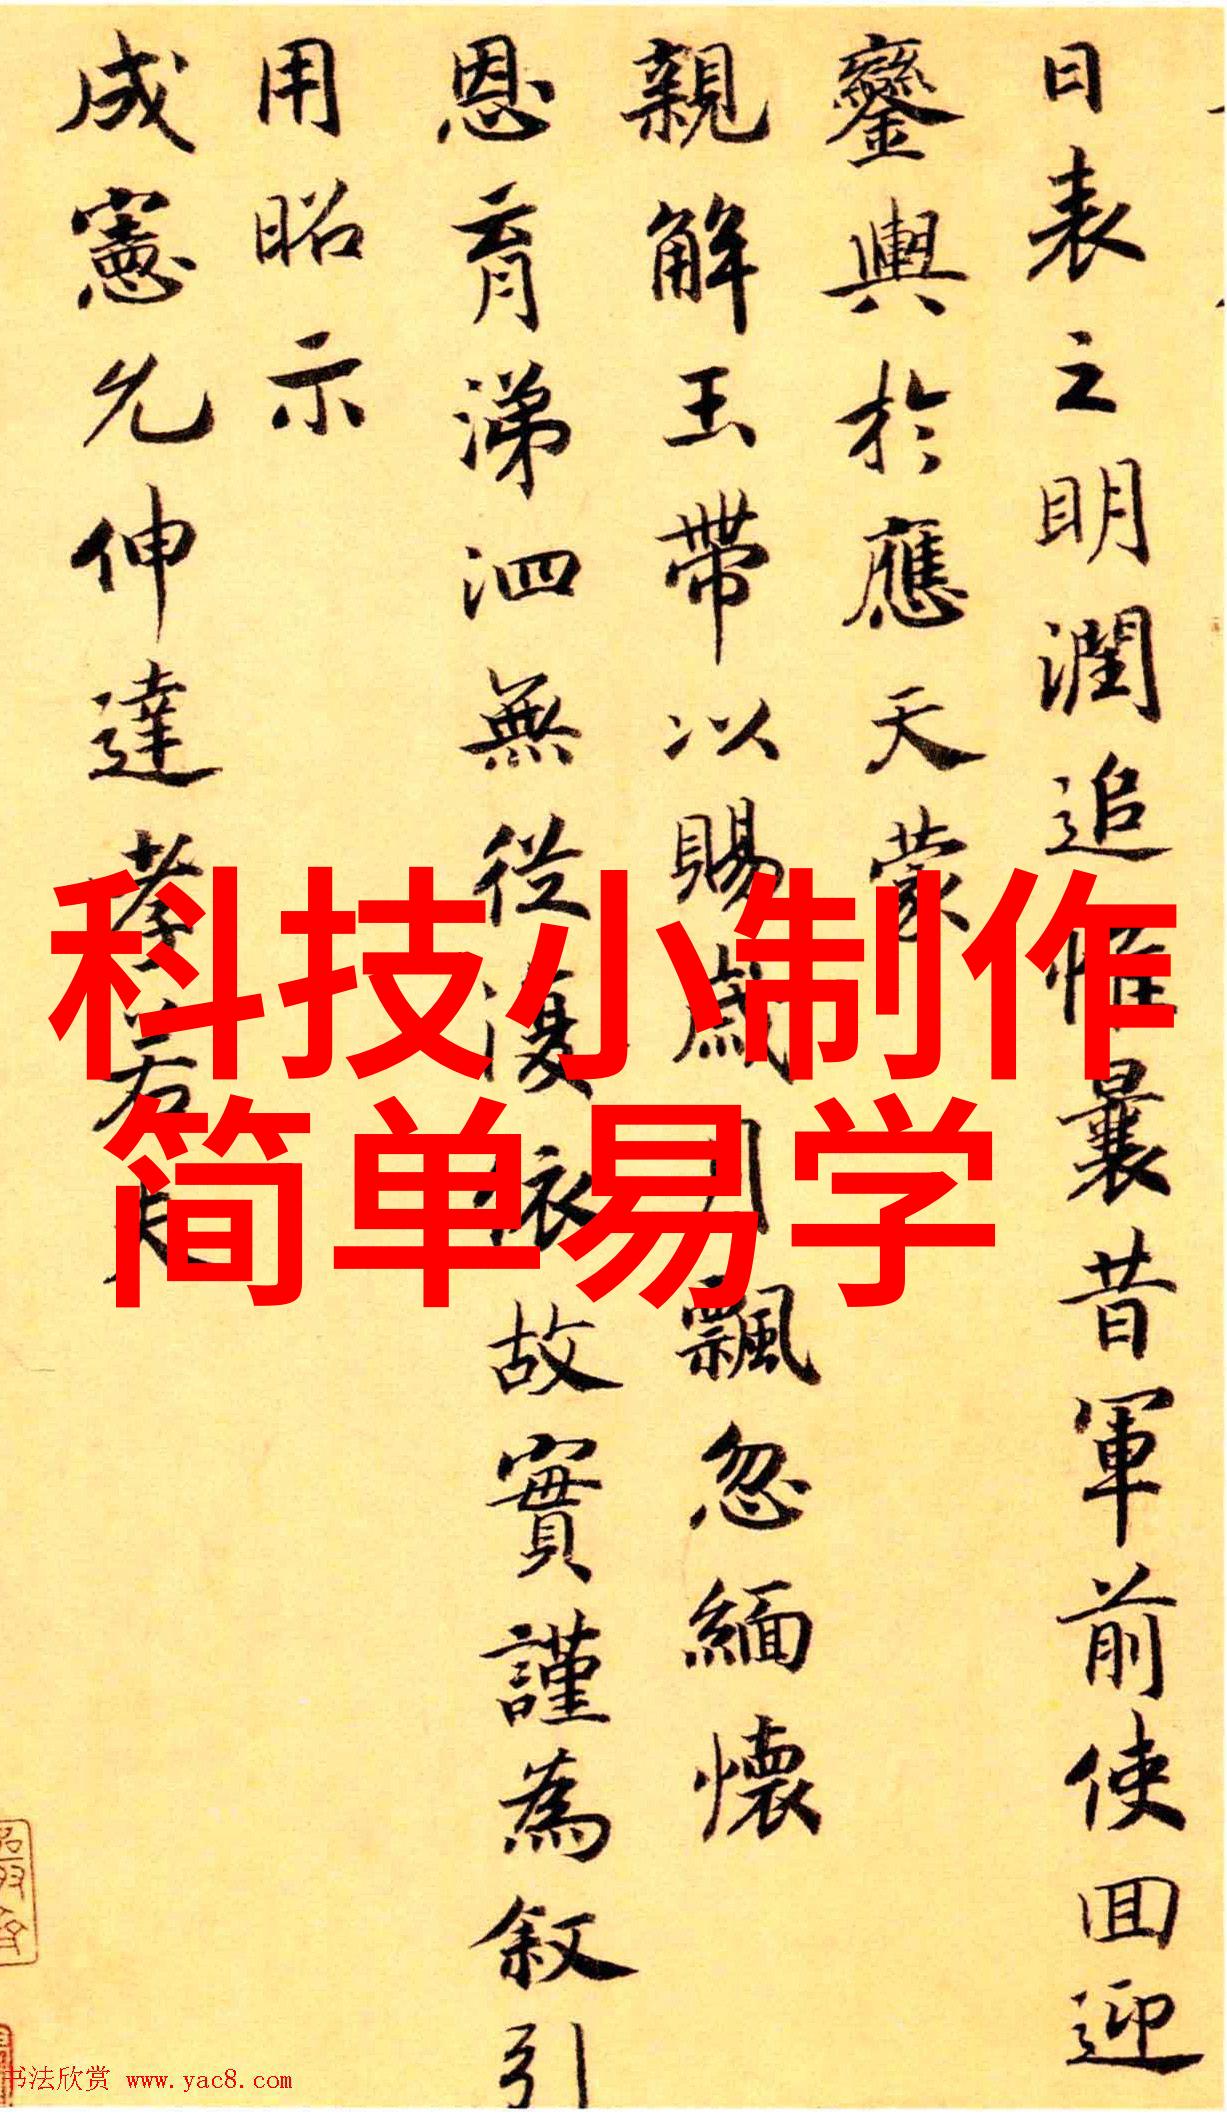 日表之明潤追惟曩昔軍前使回迎
鑾輿於應天蒙
親解玉帶以賜歲月飄忽緬懷
恩育涕泗無從復依故實謹為叙引
用昭示
成憲允伸達孝若夫
科技小制作
简单易学
书法欣赏 www.yac8.com